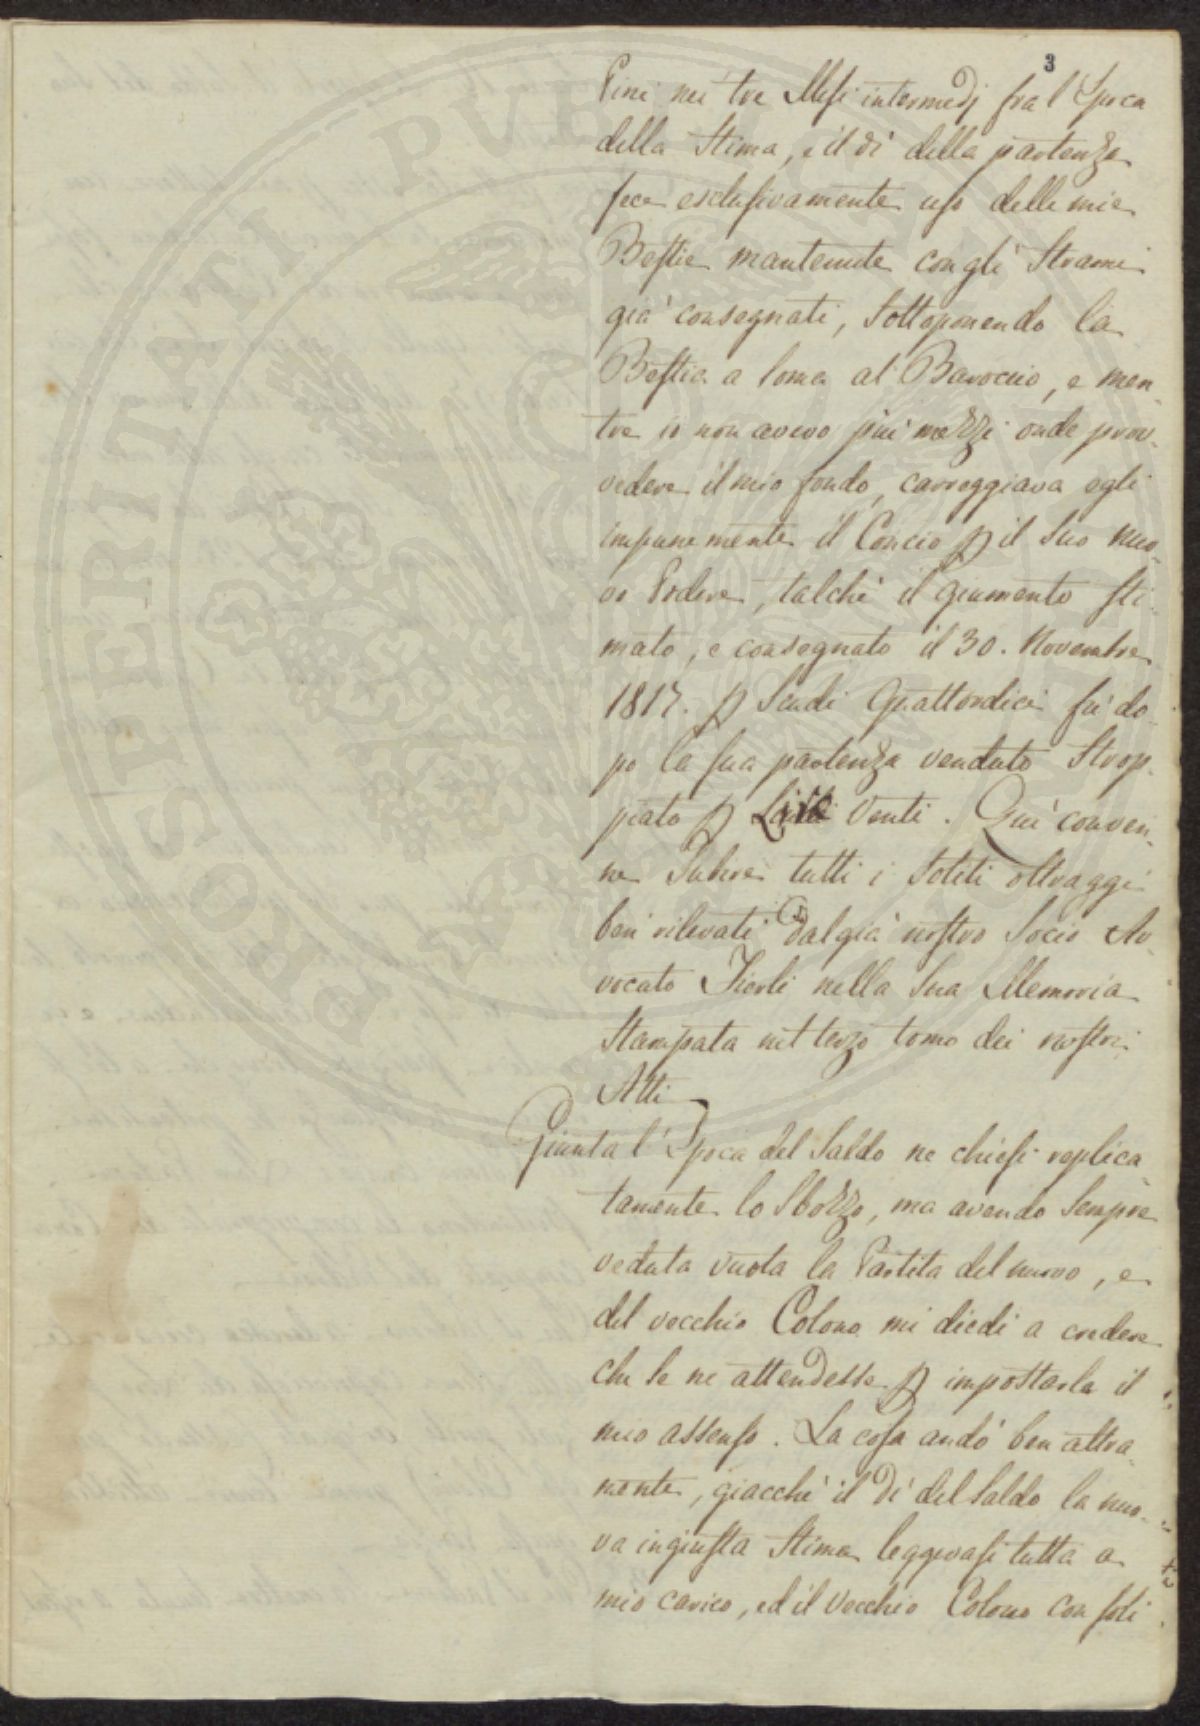 3
Pini nei tre Mesi intermedj fra l'Epoca
della Stima, e il dì della partenza
fece esclusivamente uso delle mie
Bestie mantenute con gli Strami
già consegnati, sottoponendo la
Bestia a soma al Baroccio, e men-
tre io non avevo più mezzi onde prov-
vedere il mio fondo, carreggiava egli
impunemente il Concio p il suo nuo-
vo Podere, talchè il giumento sti-
mato, e consegnato il 30. Novembre
1817. p Scudi Quattordici fù do-
po la sua partenza venduto Strop-
piato p Lire Venti. Quì conven-
ne subire tutti i soliti oltraggi
ben rilevati dal già nostro Socio Av-
vocato Fierli nella sua Memoria
Stampata nel terzo tomo dei nostri
Atti
Giunta l'Epoca del Saldo ne chiesi replica
tamente lo Sbozzo, ma avendo sempre
veduta vuota la Partita del nuovo, e
del vecchio Colono mi diedi a credere
che se ne attendesse p impostarla il
mio assenso. La cosa andò ben altra-
mente, giacchè il dì del Saldo la nuo-
va ingiusta Stima leggevasi tutta a
mio carico, ed il Vecchio Colono con soli
PROSPERITATI PUBLICAE